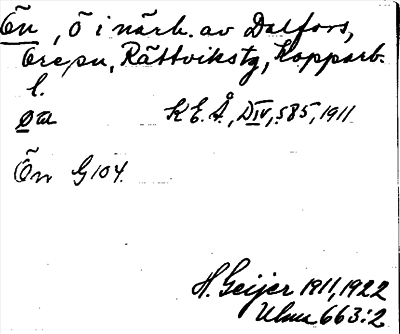 Ön, ö i närh. av Dalfors,
Ore sn, Rättvikstg, Kopparb.
l.
K.E.Å., D IV, 585, 1911
Ön G104
H. Geijer 1911, 1922
Ulma 663:2